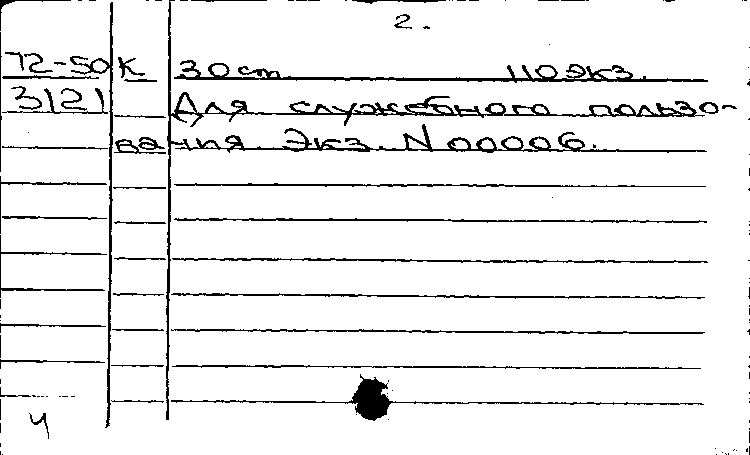 2.
72-50 К 30 cm. 110 экз.
3121 Для служебного пользо-
вания. Экз. N 00006.
ч